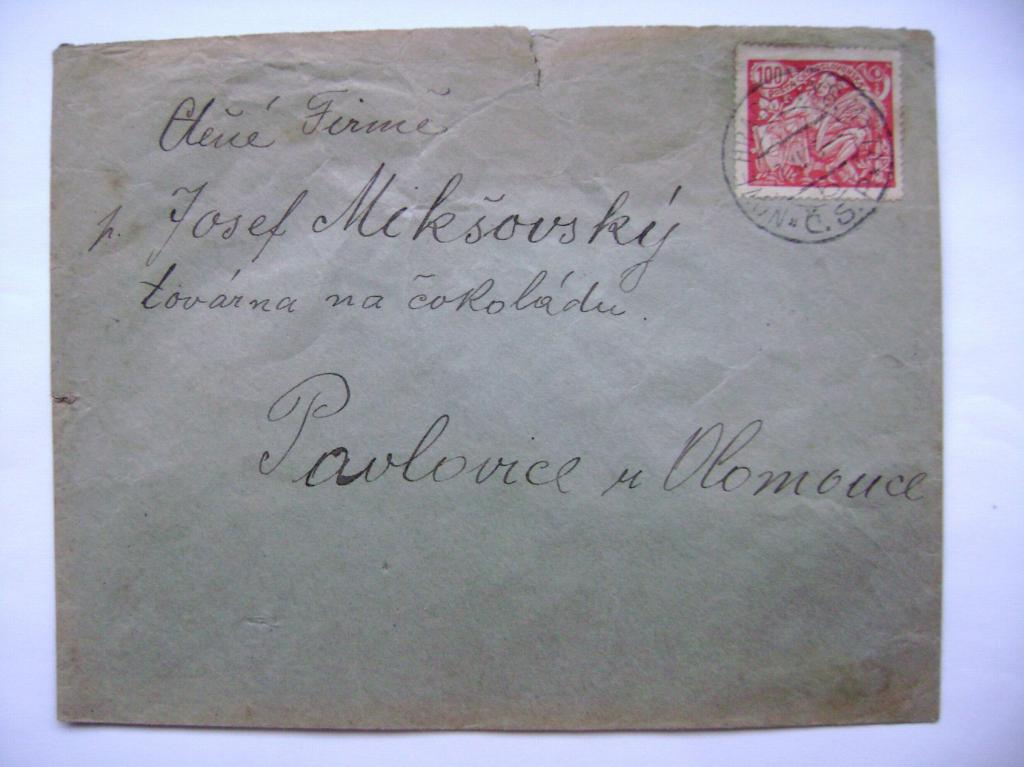 Ctěné Firmě
p. Josef Mikšovský
továrna na čokoládu.
Pavlovice u Olomouce
100
Č.S.